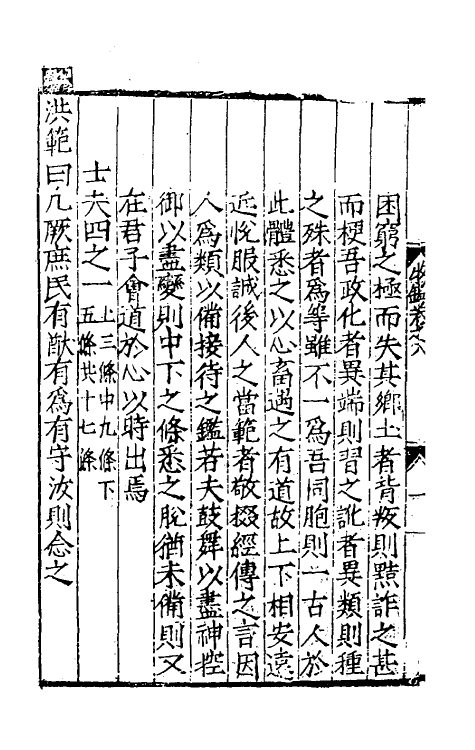 困窮之極而失其鄉土者背叛則黠詐之甚
而梗吾政化者異端則習之訛者異類則種
之殊者為等雖不一為吾同胞則一古人於
此體悉之以心畜遇之有道故上下相安遠
近悅服誠後人之當範者敬掇經傳之言因
人為類以備接待之鑑若夫鼓舞以盡神控
御以盡變則中下之條悉之脫猶未備則又
在君子會道於心以時出焉
士夫四之一上三條中九條下
五條共十七條
洪範曰凡厥庶民有猷有為有守汝則念之
牧鑑卷之六